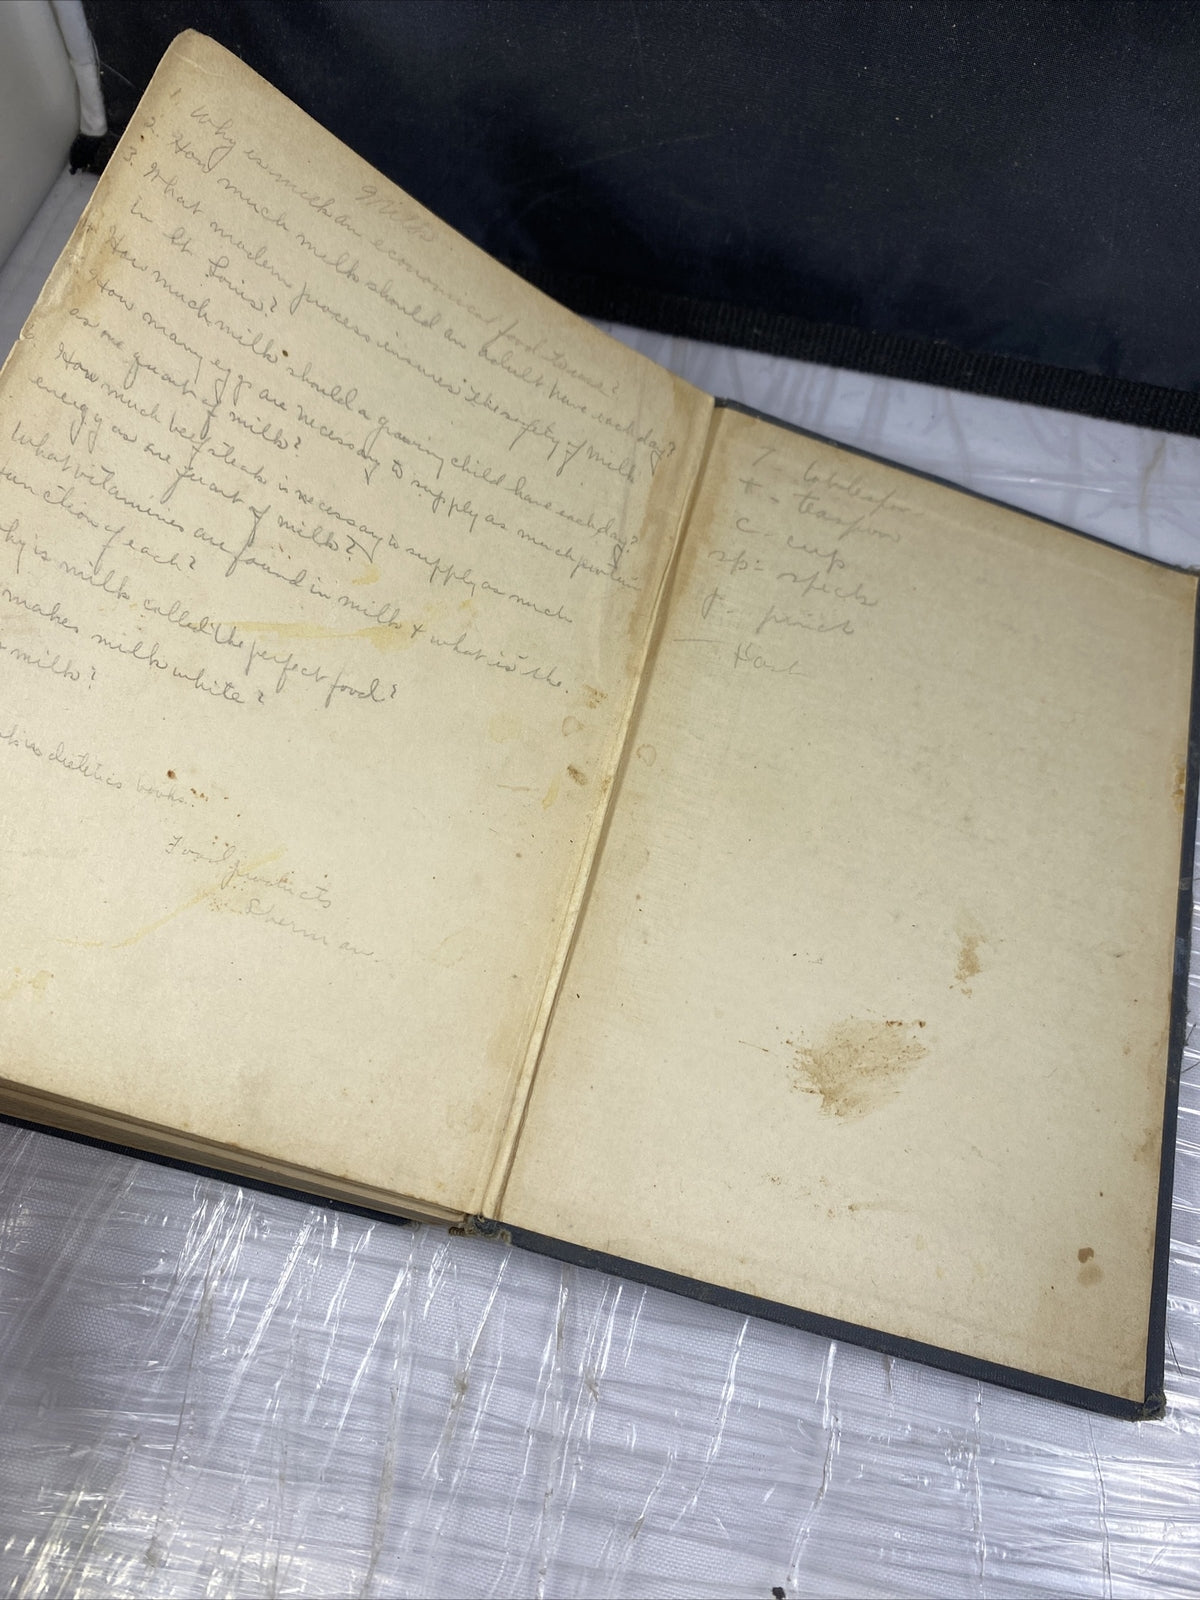 Milk
1. Why is milk an economical food to use?
2. How much milk should an adult have each day?
3. What modern process insures the safety of milk
in St. Louis?
4. How much milk should a growing child have each day?
How many eggs are necessary to supply as much protein
as one quart of milk?
6. How much beefsteak is necessary to supply as much
energy as one quart of milk?
What vitamines are found in milk & what is the
function of each?
is milk called the perfect food?
makes milk white?
milk?
dietetics books.
Food products
Sherman
T - tablespoon
t - teaspoon
c - cup
sp = specks